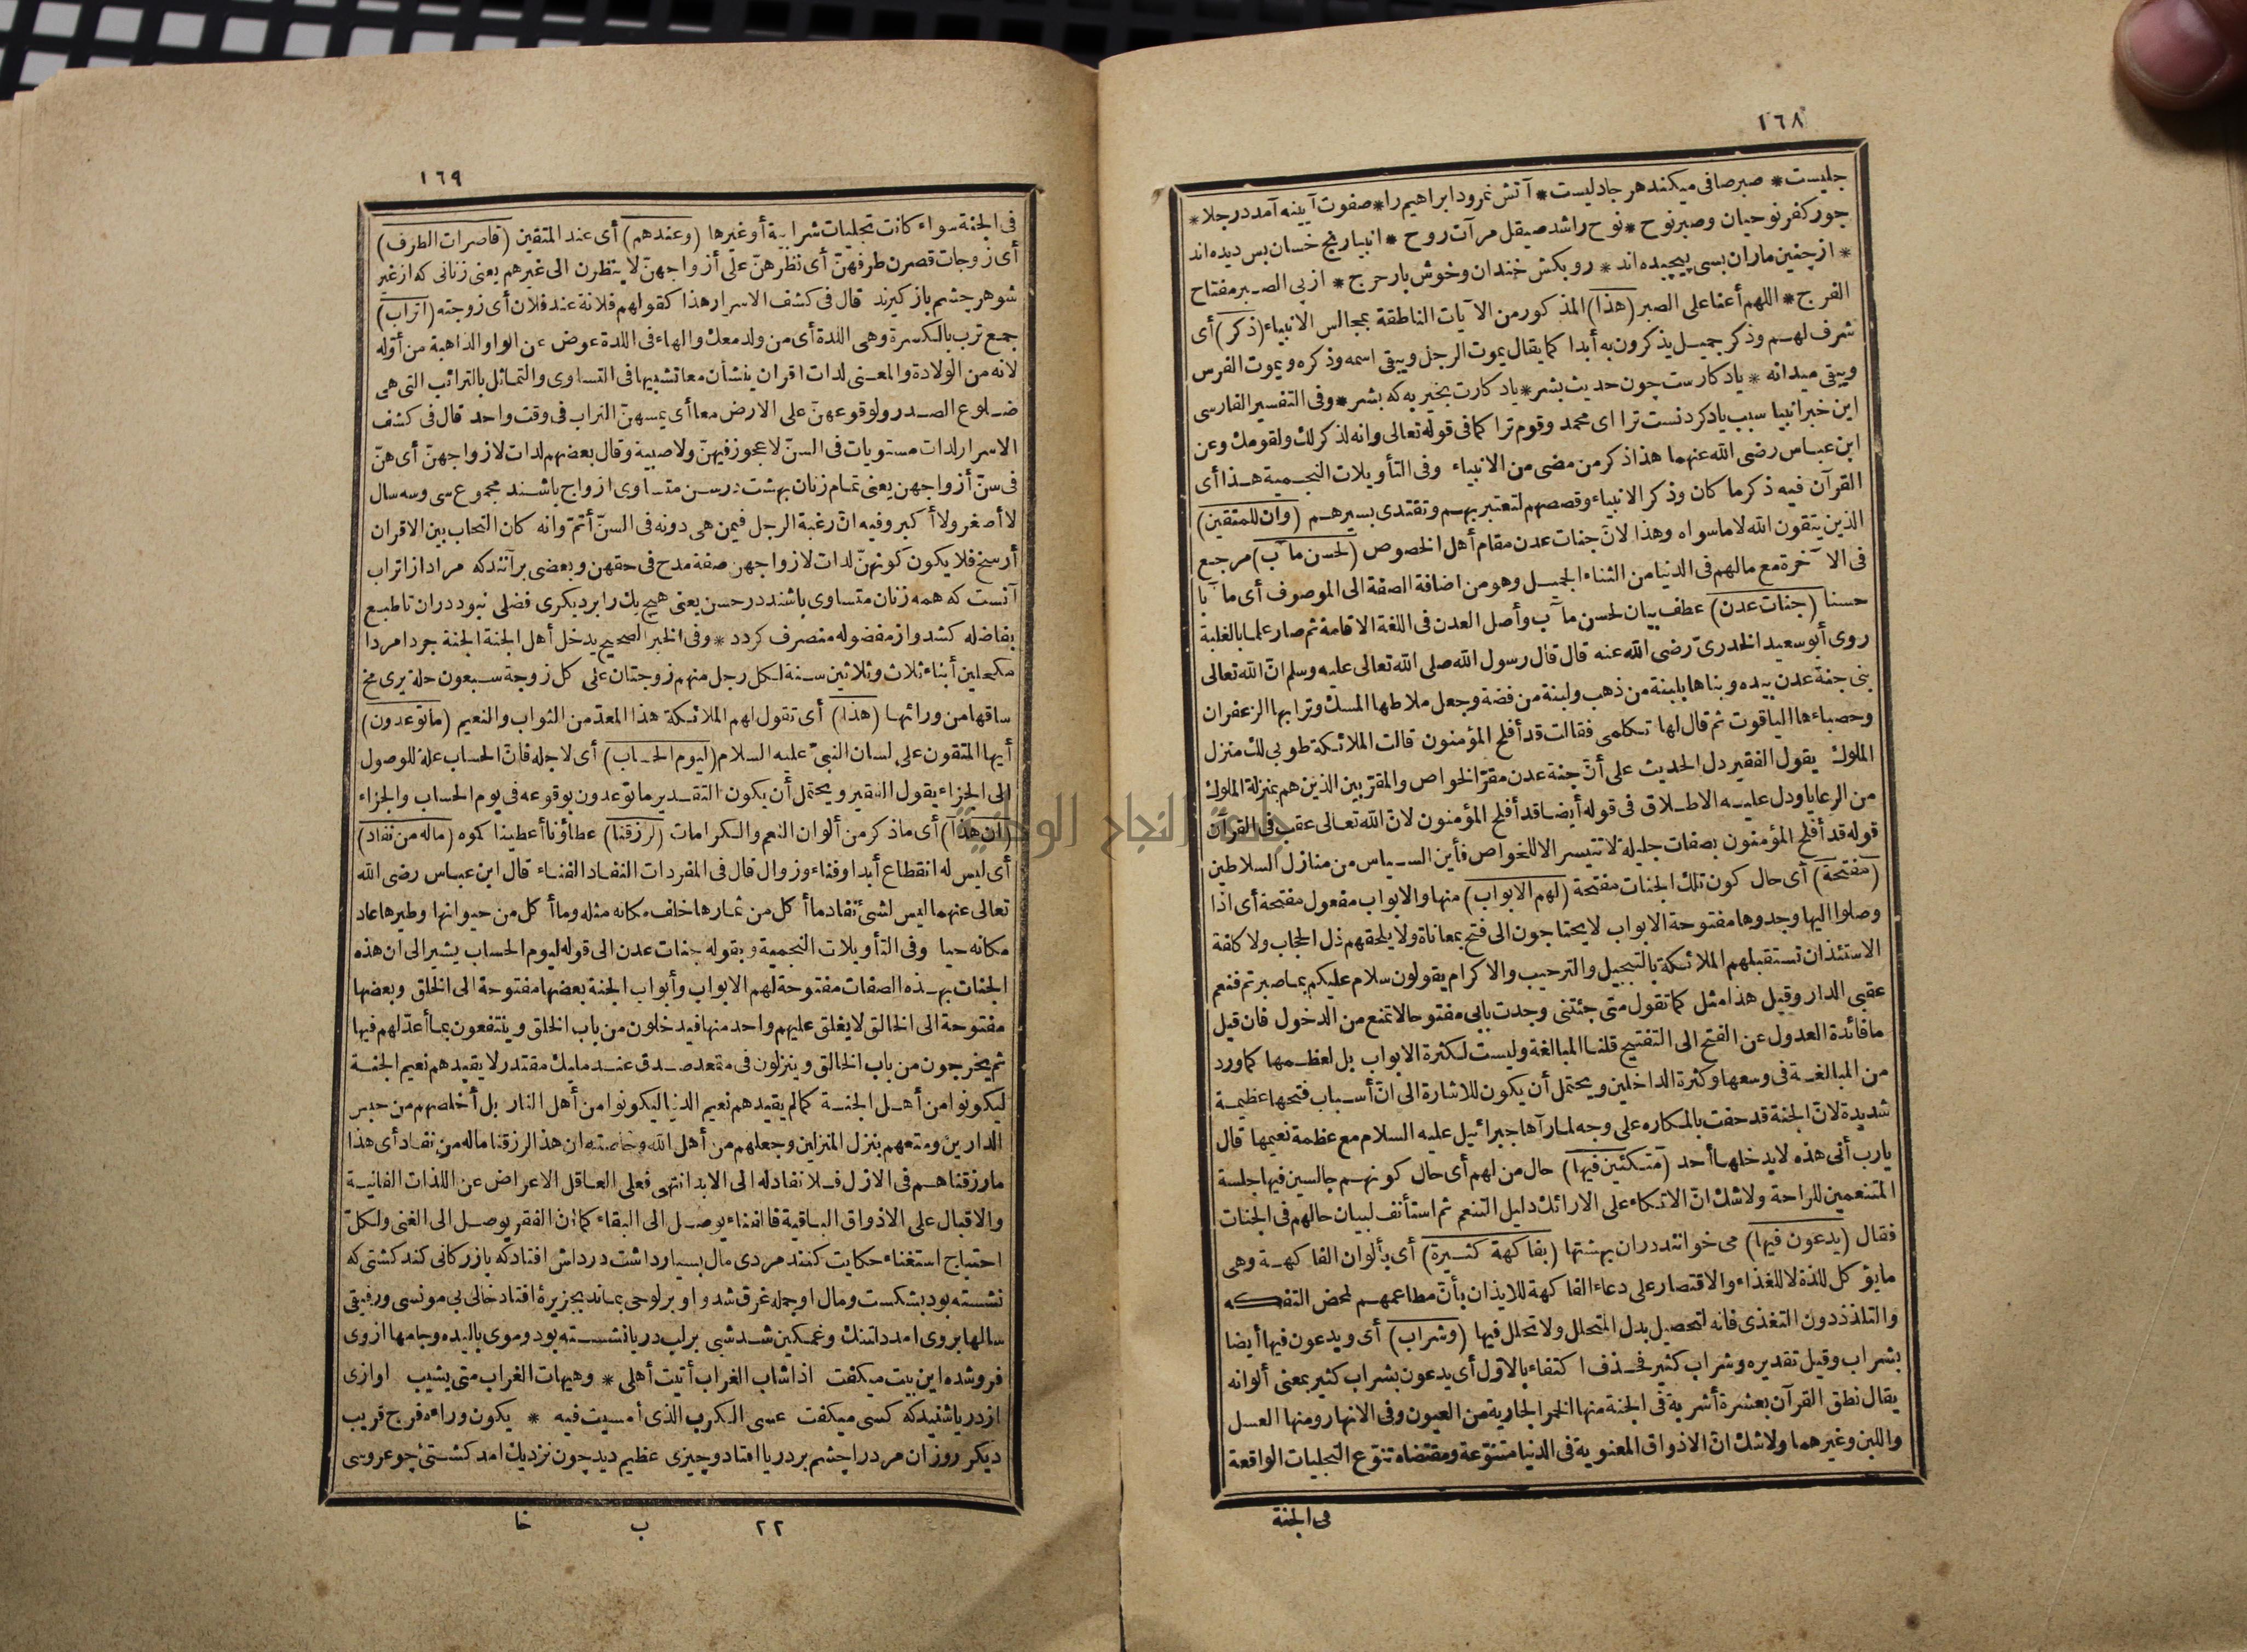 ١٦٨
جليست * صبر صافى ميكند هر جا دليست * آتش نمرود ابراهيم را * صفوت آيينه آمد در جلا *
جور كفر نوحيان وصبر نوح * نوح را شد صيقل مرآت روح * انبيا رنج خسان بس ديده اند
* از چنين ماران بسى پيچيده اند * رو بكش خندان وخوش بار حرج * از پى الصبر مفتاح
الفرج * اللهم أعنا على الصبر (هذا) المذكور من الآيات الناطقة بمحاسن الانبياء (ذكر) أى
شرف لهم وذكر جميل يذكرون به أبدا كما يقال يموت الرجل ويبقى اسمه وذكره ويموت الفرس
ويبقى ميدانه * ياد كارست چون حديث بشر * ياد كارت بخير به كه بشر * وفى التفسير الفارسى
اين خبر انبيا سبب ياد كردنست ترا اى محمد وقوم ترا كما فى قوله تعالى وانه لذكر لك ولقومك وعن
ابن عباس رضى الله عنهما هذا ذكر من مضى من الانبياء وفى التأويلات النجمية هذا أى
القرآن فيه ذكر ما كان وذكر الانبياء وقصصهم لتعتبر بهم وتقتدى بسيرهم (وان للمتقين)
الذين يتقون الله لا ما سواه وهذا لانّ جنات عدن مقام أهل الخصوص (لحسن مآب) مرجع
فى الآخرة مع مالهم فى الدنيا من الثناء الجميل وهو من اضافة الصفة الى الموصوف أى مآبا
حسنا (جنات عدن) عطف بيان لحسن مآب وأصل العدن فى اللغة الاقامة ثم صار علما بالغلبة
روى أبو سعيد الخدرىّ رضى الله عنه قال قال رسول الله صلى الله تعالى عليه وسلم انّ الله تعالى
بنى جنة عدن بيده وبناها بلبنة من ذهب ولبنة من فضة وجعل ملاطها المسك وترابها الزعفران
وحصباءها الياقوت ثم قال لها تكلمى فقالت قد أفلح المؤمنون قالت الملائكة طوبى لك منزل
الملوك يقول الفقير دل الحديث على أنّ جنة عدن مقرّ الخواص والمقرّبين الذين هم بمنزلة الملوك
من الرعايا ودل عليه الاطلاق فى قوله أيضا قد أفلح المؤمنون لانّ الله تعالى عقب فى القرآن
قوله قد أفلح المؤمنون بصفات جليلة لا تتيسر الا للخواص فأين السياس من منازل السلاطين
(مفتحة) أى حال كون تلك الجنات مفتحة (لهم الابواب) منها والابواب مفعول مفتحة أى اذا
وصلوا اليها وجدوها مفتوحة الابواب لا يحتاجون الى فتح بمعاناة ولا يلحقهم ذل الحجاب ولا كلفة
الاستئذان تستقبلهم الملائكة بالتبجيل والترحيب والاكرام يقولون سلام عليكم بما صبرتم فنعم
عقبى الدار وقيل هذا مثل كما تقول متى جئتنى وجدت بابى مفتوحا لا تمنع من الدخول فان قيل
ما فائدة العدول عن الفتح الى التفتيح قلنا المبالغة وليست لكثرة الابواب بل لعظمها كما ورد
من المبالغة فى وسعها وكثرة الداخلين ويحتمل أن يكون للاشارة الى انّ أسباب فتحها عظيمة
شديدة لانّ الجنة قد حفت بالمكاره على وجه لما رآها جبرائيل عليه السلام مع عظمة نعيمها قال
يارب أنى هذه لا يدخلها أحد (متكئين فيها) حال من لهم أى حال كونهم جالسين فيها جلسة
المتنعمين للراحة ولا شك انّ الاتكاء على الارائك دليل التنعم ثم استأنف لبيان حالهم فى الجنات
فقال (يدعون فيها) مى خوانند دران بهشتها (بفاكهة كثيرة) أى بألوان الفاكهة وهى
ما يؤكل للذة لا للغذاء والاقتصار على دعاء الفاكهة للايذان بأنّ مطاعمهم لمحض التفكه
والتلذذ دون التغذى فانه لتحصيل بدل المتحلل ولا تحلل فيها (وشراب) أى ويدعون فيها أيضا
بشراب وقيل تقديره وشراب كثير فحذف اكتفاء بالاول أى يدعون بشراب كثير بمعنى ألوانه
يقال نطق القرآن بعشرة أشربة فى الجنة منها الخمر الجارية من العيون وفى الانهار ومنها العسل
واللبن وغيرهما ولا شك انّ الاذواق المعنوية فى الدنيا متنوّعة ومقتضاه تنوّع التجليات الواقعة
فى الجنة
١٦٩
فى الجنة سواء كانت تجليات شرابية أو غيرها (وعندهم) أى عند المتقين (قاصرات الطرف)
أى زوجات قصرن طرفهنّ أى نظرهنّ على أزواجهنّ لا ينظرن الى غيرهم يعنى زنانى كه از غير
شوهر چشم باز كيرند قال فى كشف الاسرار هذا كقولهم فلانة عند فلان أى زوجته (اتراب)
جمع ترب بالكسرة وهى اللدة أى من ولد معك والهاء فى اللدة عوض عن الواو الذاهبة من أوّله
لانه من الولادة والمعنى لدات اقران ينشأن معا تشبيها فى التساوى والتماثل بالترائب التى هى
ضلوع الصدر ولوقوعهنّ على الارض معا أى يمسهنّ التراب فى وقت واحد قال فى كشف
الاسرار لدات مستويات فى السنّ لا عجوز فيهنّ ولا صبية وقال بعضهم لدات لازواجهنّ أى هنّ
فى سنّ أزواجهن يعنى تمام زنان بهشت در سن متساوى ازواج باشند مجموع سى وسه سال
لا أصغر ولا أكبر وفيه انّ رغبة الرجل فيمن هى دونه فى السنّ أتمّ وانه كان التحاب بين الاقران
أرسخ فلا يكون كونهنّ لدات لازواجهن صفة مدح فى حقهن وبعضى برآنند كه مراد از اتراب
آنست كه همه زنان متساوى باشند در حسن يعنى هيچ يك را بر ديكرى فضلى نبود دران تا طبع
بفاضله كشد واز مفضوله منصرف كردد * وفى الخبر الصحيح يدخل أهل الجنة الجنة جردا مردا
مكحلين أبناء ثلاث وثلاثين سنة لكل رجل منهم زوجتان على كل زوجة سبعون حلة يرى مخ
ساقها من ورائها (هذا) أى تقول لهم الملائكة هذا المعدّ من الثواب والنعيم (ما توعدون)
أيها المتقون على لسان النبىّ عليه السلام (ليوم الحساب) أى لاجله فانّ الحساب علة للوصول
الى الجزاء يقول الفقير ويحتمل أن يكون التقدير ما توعدون بوقوعه فى يوم الحساب والجزاء
(ان هذا) أى ما ذكر من ألوان النعم والكرامات (لرزقنا) عطاؤنا أعطيناكموه (ماله من نفاد)
أى ليس له انقطاع أبدا وفناء وزوال قال فى المفردات النفاد الفناء قال ابن عباس رضى الله
تعالى عنهما ليس لشئ نفاد ما أكل من ثمارها خلف مكانه مثله وما أكل من حيوانها وطيرها عاد
مكانه حيا وفى التأويلات النجمية وبقوله جنات عدن الى قوله ليوم الحساب يشير الى ان هذه
الجنات بهذه الصفات مفتوحة لهم الابواب وأبواب الجنة بعضها مفتوحة الى الخلق وبعضها
مفتوحة الى الخالق لا يغلق عليهم واحد منها فيدخلون من باب الخلق وينتفعون بما أعدّ لهم فيها
ثم يخرجون من باب الخالق وينزلون فى مقعد صدق عند مليك مقتدر لا يقيدهم نعيم الجنة
ليكونوا من أهل الجنة كما لم يقيدهم نعيم الدنيا ليكونوا من أهل النار بل أخلصهم من حبس
الدارين ومتعهم بنزل المنزلين وجعلهم من أهل الله وخاصته ان هذا لرزقنا ماله من نفاد أى هذا
ما رزقناهم فى الازل فلا نفاد له الى الابد انتهى فعلى العاقل الاعراض عن اللذات الفانية
والاقبال على الاذواق الباقية فالفناء يوصل الى البقاء كما انّ الفقر يوصل الى الغنى ولكلّ
احتياج استغناء حكايت كنند مردى مال بسيار داشت درداش افتاد كه بازركانى كند كشتى كه
نشسته بود بشكست ومال او جمله غرق شد واو بر لوحى بماند بجزيرهٔ افتاد خالى بى مونسى ورفيقى
سالها بروى امد دلتنك وغمكين شد شبى بر لب دريا نشسته بود وموى باليده وجامها ازوى
فروشده اين بيت ميكفت اذا شاب الغراب أتيت أهلى * وهيهات الغراب متى يشيب اوازى
از دريا شنيد كه كسى ميكفت عسى الكرب الذى أمسيت فيه * يكون وراءه فرج قريب
ديكر روز ان مرد را چشم بر دريا افتاد وچيزى عظيم ديد چون نزديك امد كشتئ چو عروسى
٢٢ ب خا
جامعة النجاح الوطنية